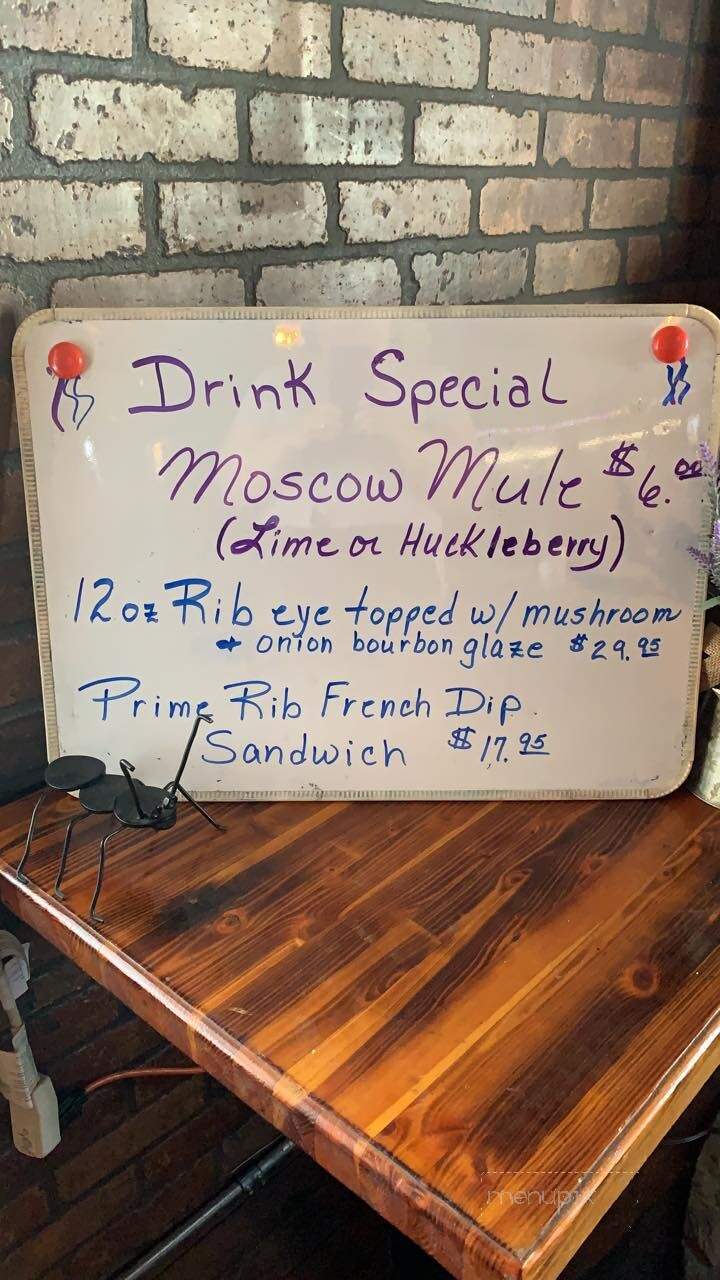 Drink Special
Moscow Mule $6.00
(Lime or Huckleberry)
12oz Rib eye topped w/ mushroom
+ onion bourbon glaze $29.95
Prime Rib French Dip
Sandwich $17.95
menupix